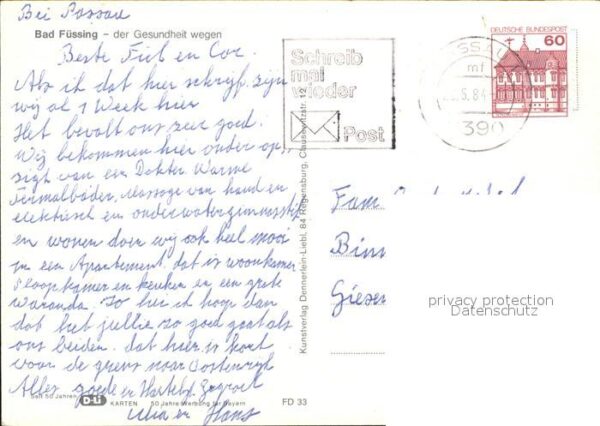 Bei Passau
Bad Füssing – der Gesundheit wegen
Beste Fiel en Cor.
Als ik dat hier schryf zyn
wy al 1 Week hier
Het bevalt ons zeer goed.
Wy bekommen hier onder op,
sigt van ein Dokter Warme
Termalbäder, Massage van hand en
elektrisch en onderwatergimnastik
en wonen doen wy ook heel mooi
in een Apartement, dat is woonkamer
slaapkamer en keuken en een grote
Waranda. Zo hier ik hoop dan
dat het jullie zo goed gaat als
ons beiden. dat hier is kort
voor de grens naar Oostenryk
Alles goede en Hartel. Zegroet
en Hans
Seit 50 Jahren D-Li KARTEN 50 Jahre Werbung für Bayern
FD 33
Kunstverlag Dennerlein-Liebl, 84 Regensburg, Clausewitzstr. 12
Schreib
mal
wieder
Post
PASSAU
mf
.5.84
390
DEUTSCHE BUNDESPOST
60
Fam
Bin
Giesen
privacy protection
Datenschutz